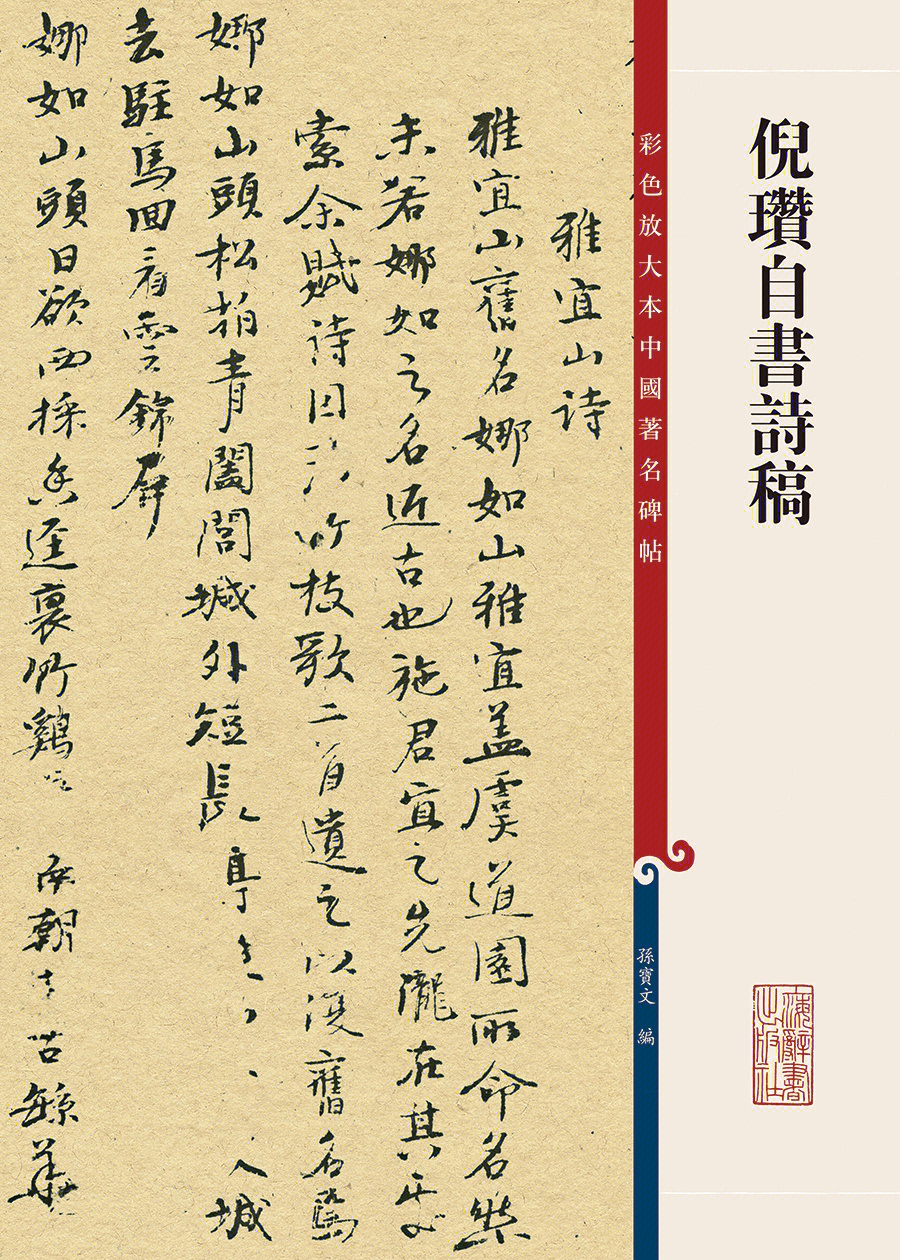 倪瓚自書詩稿
彩色放大本中國著名碑帖
孫寶文 編
上海辭書出版社
雅宜山詩
雅宜山舊名娜如山雅宜蓋虞道園所命名然
未若娜如之名近古也施君宜之先隴在其
索余賦詩因竹枝歌二首遺之以復舊名焉
娜如山頭松柏青闔閭城外短長亭入城
去駐馬回看雲錦屏
娜如山頭日欲西採香逕裏竹鷄